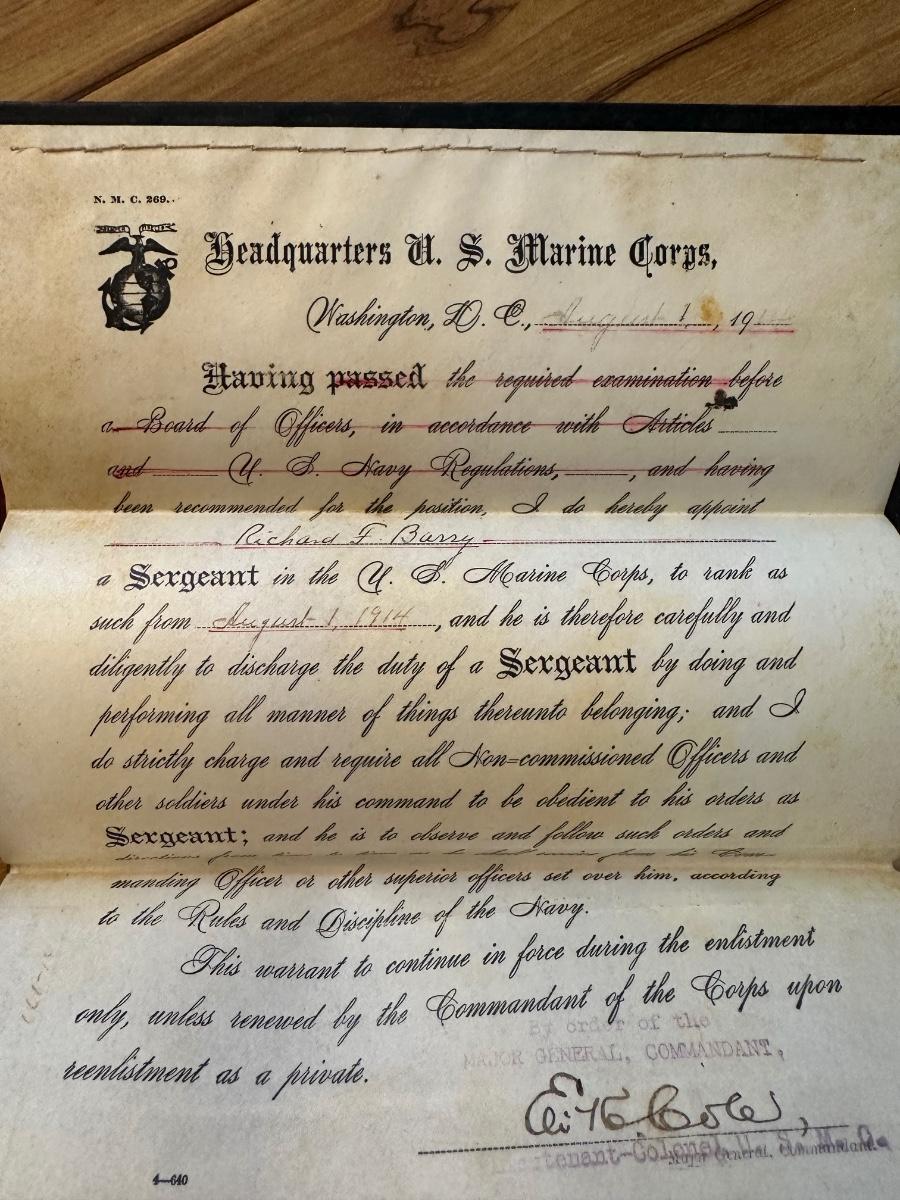 N. M. C. 269.
Headquarters U. S. Marine Corps,
Washington, D. C., August 1, 19
Having passed the required examination before
a Board of Officers, in accordance with Articles
and U. S. Navy Regulations, , and having
been recommended for the position, I do hereby appoint
Richard F. Barry
a Sergeant in the U. S. Marine Corps, to rank as
such from August 1, 1914, and he is therefore carefully and
diligently to discharge the duty of a Sergeant by doing and
performing all manner of things thereunto belonging; and I
do strictly charge and require all Non=commissioned Officers and
other soldiers under his command to be obedient to his orders as
Sergeant; and he is to observe and follow such orders and
directions from time to time
manding Officer or other superior officers set over him, according
to the Rules and Discipline of the Navy.
This warrant to continue in force during the enlistment
only, unless renewed by the Commandant of the Corps upon
By order of the
MAJOR GENERAL, COMMANDANT,
reenlistment as a private.
Eli K. Cole,
Lieutenant-Colonel U. S. M. C.
Major General, Commandant.
4—640